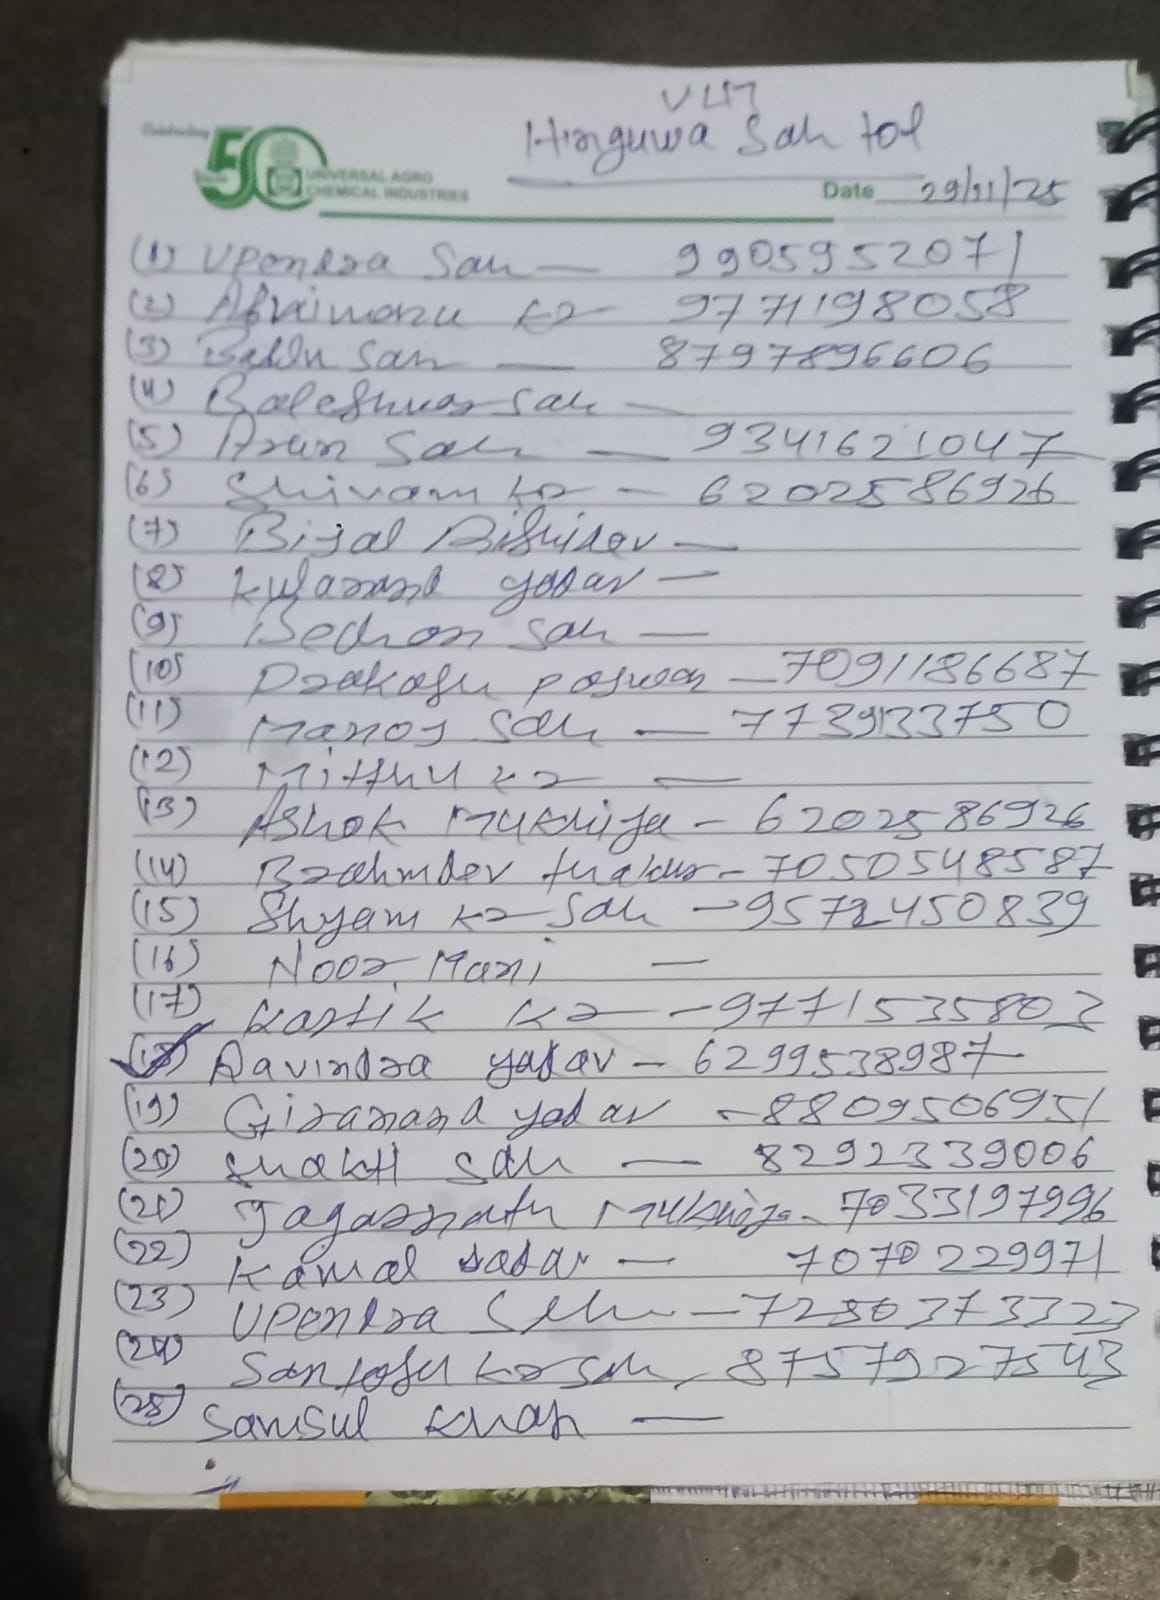 VLM
Hinguwa Sah tol
Celebrating
50
UNIVERSAL AGRO
CHEMICAL INDUSTRIES
Date 29/11/25
(1) Upendra Sah — 9905952071
(2) Abhimanu kr 9771198058
(3) Bablu Sah — 8797896606
(4) Baleshwar Sah —
(5) Arun Sah — 9341621047
(6) Shivam kr — 6202586926
(7) Bijal Rishidev —
(8) Kulanand yadav —
(9) Bechan Sah —
(10) Prakash paswan — 7091186687
(11) Manoj Sah — 7739133750
(12) Mithu kr —
(13) Ashok Mukhiya — 6202586926
(14) Brahmdev thakur — 7050548587
(15) Shyam kr Sah — 9572450839
(16) Noor Mani —
(17) Kartik kr — 9771535803
(18) Ravindra yadav — 6299538987
(19) Giranand yadav — 8809506951
(20) Shakti Sah — 8292339006
(21) Jagarnath Mukhiya — 7033197996
(22) Kamal sadar — 7070229971
(23) Upendra Sah — 7280373323
(24) Santosh kr Sah — 8757927543
(25) Samsul Khan —